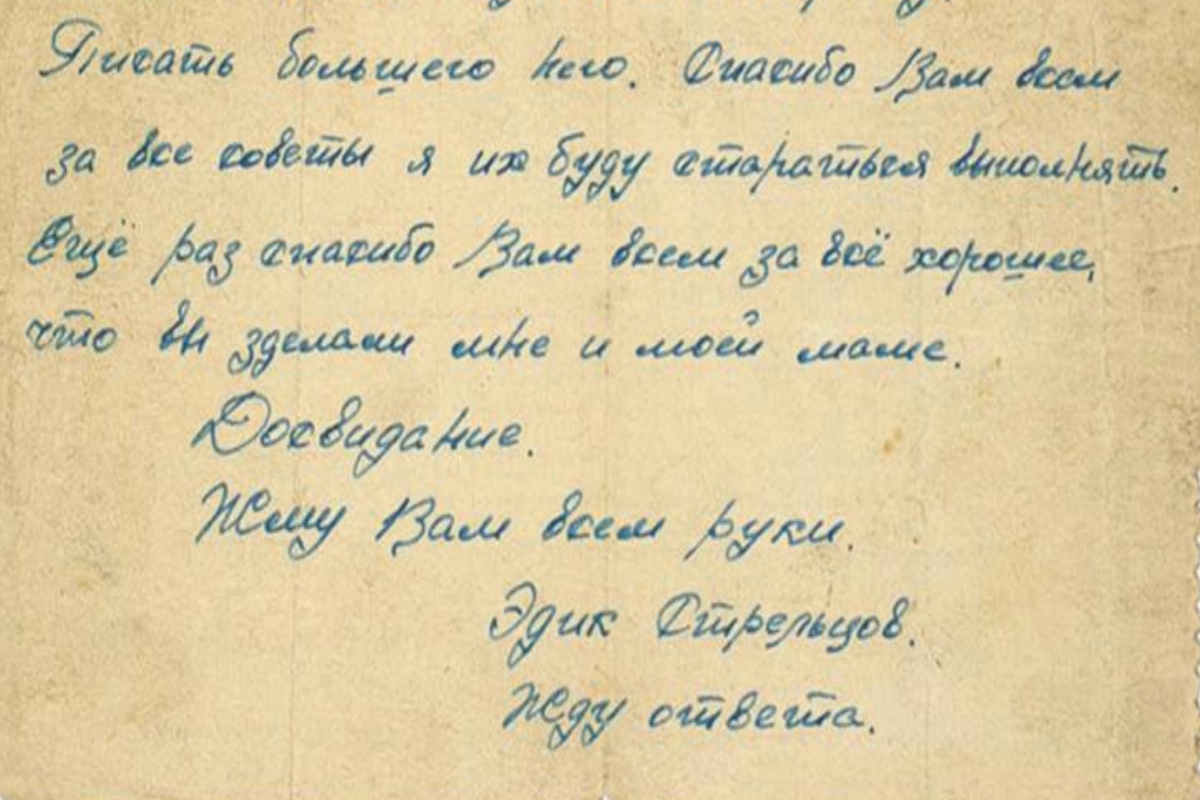 Писать большего него. Спасибо Вам всем
за все советы я их буду стараться выполнять.
Ещё раз спасибо Вам всем за всё хорошее,
что вы зделали мне и моей маме.
Досвидание.
Жму Вам всем руки.
Эдик Стрельцов.
Жду ответа.